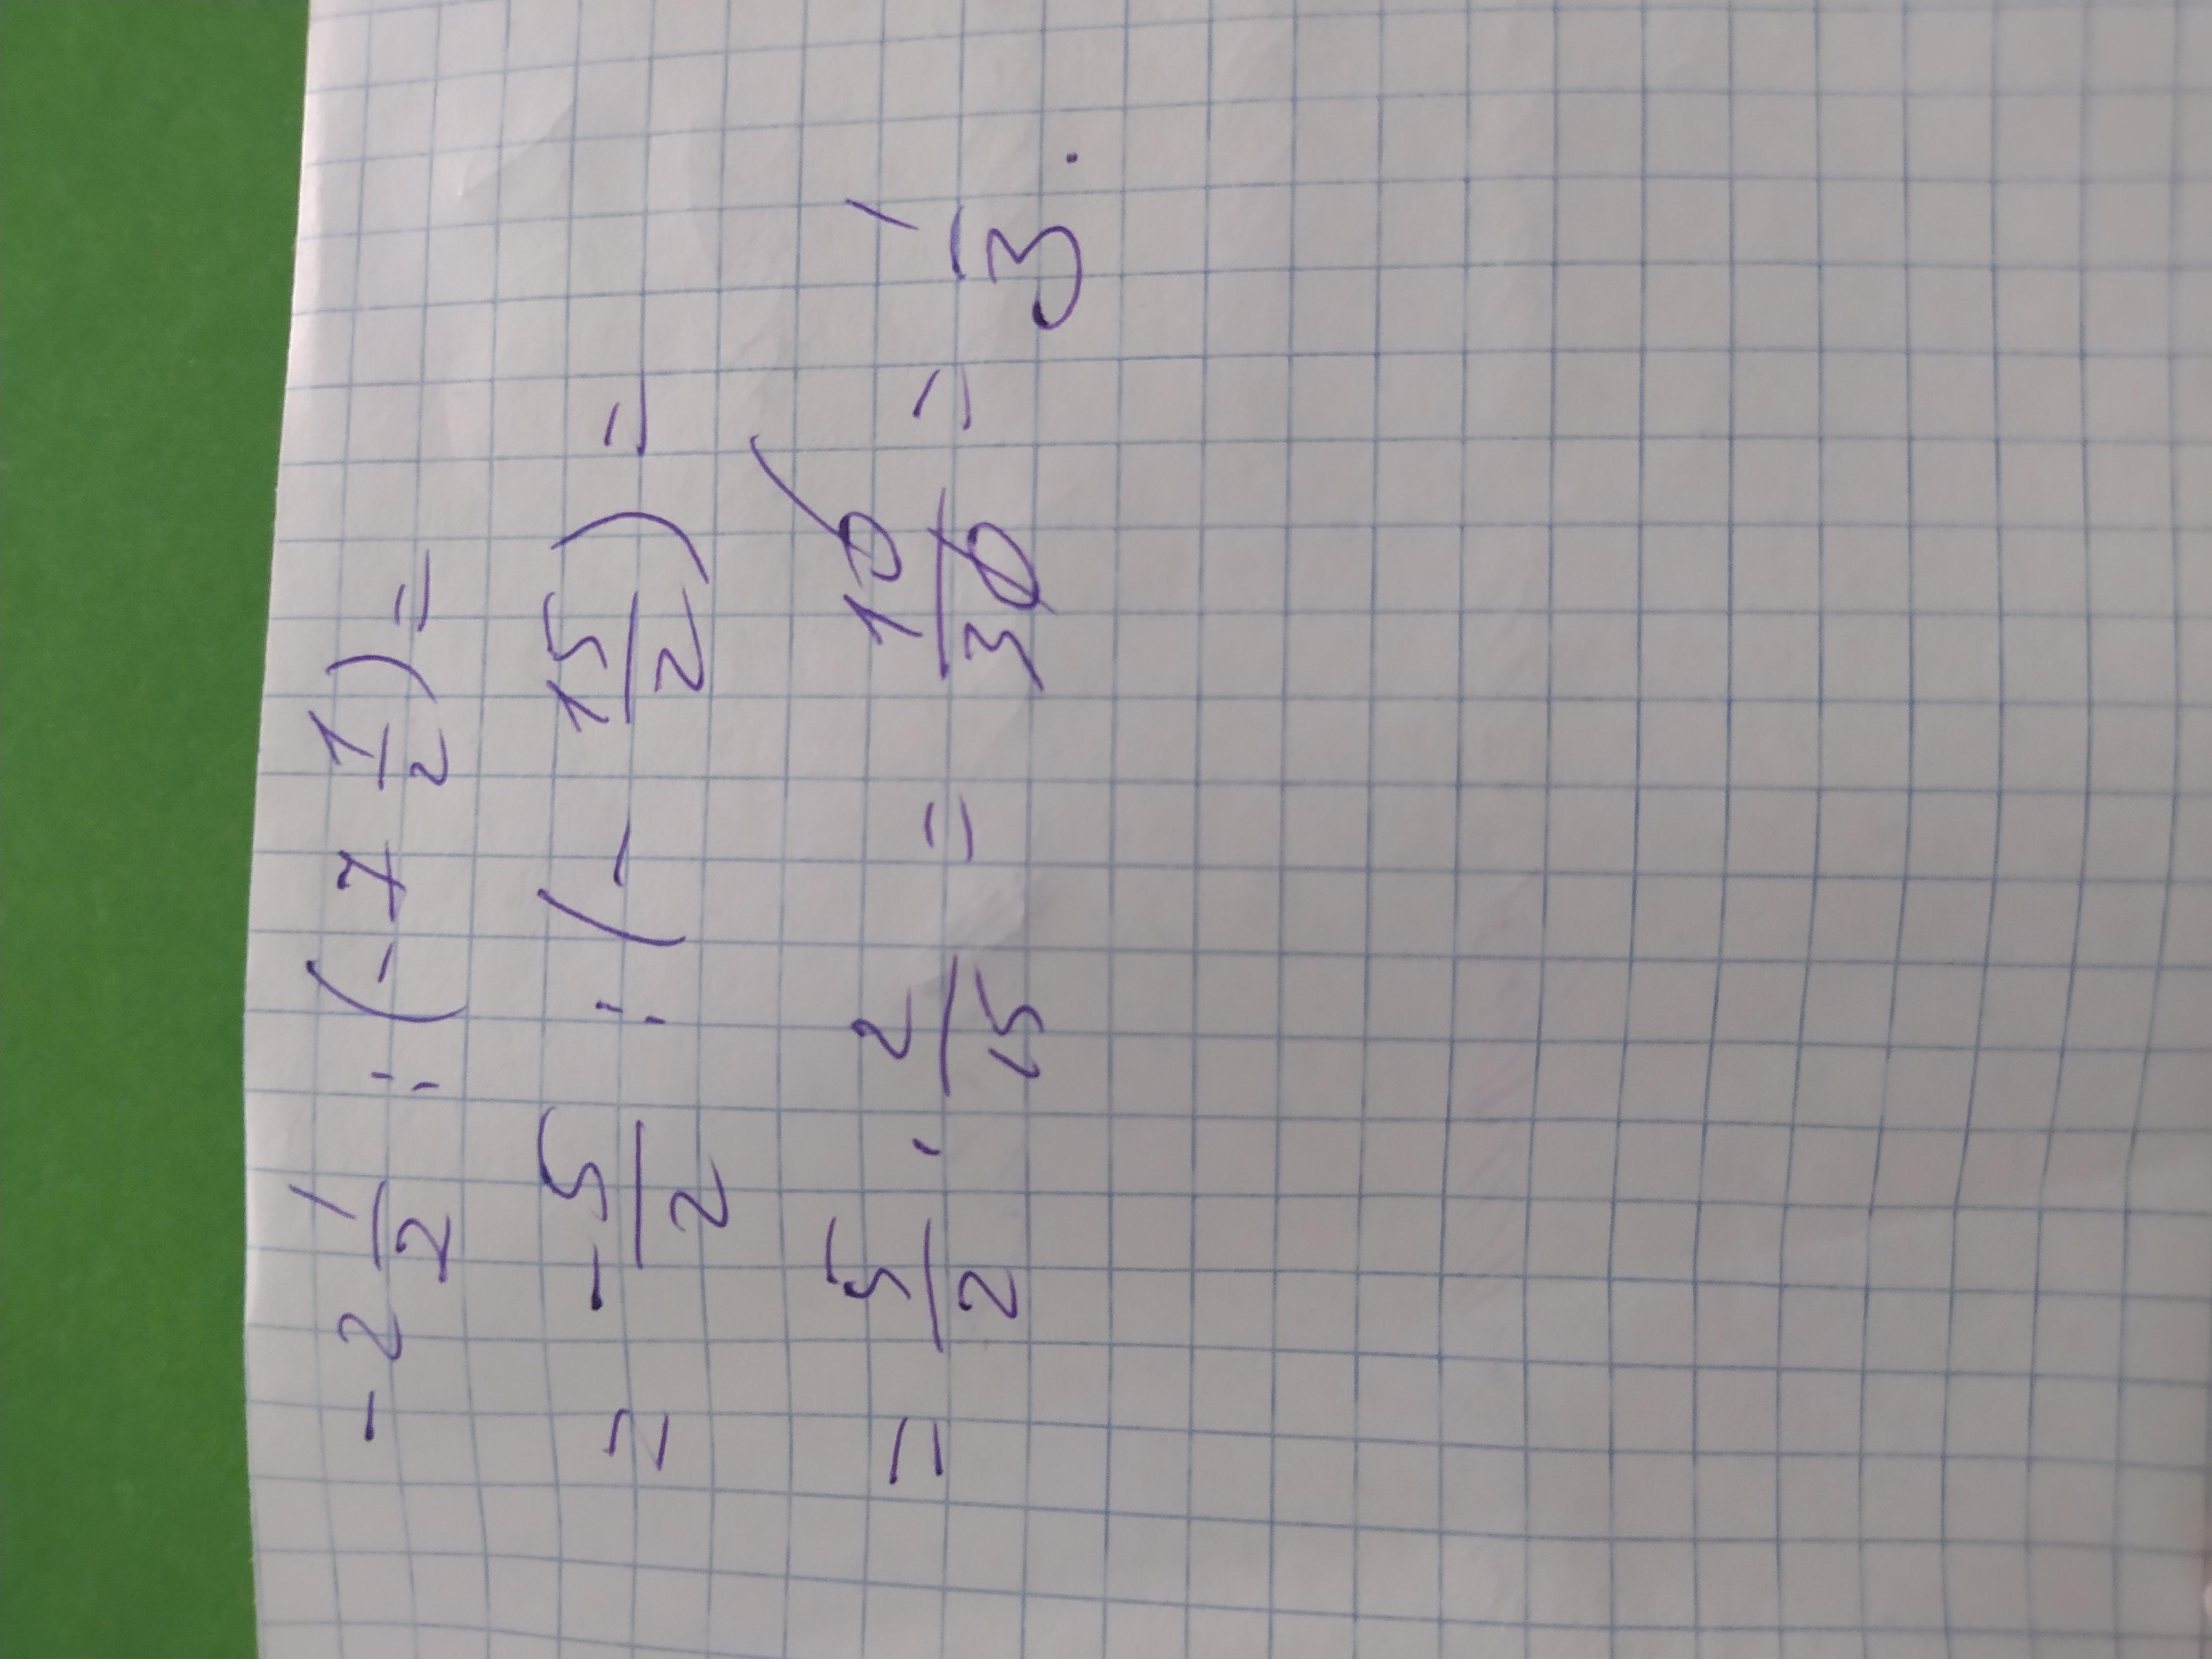 -2 1/2 : (-7 1/2) =
= -5/2 : (- 15/2) =
= 5/2 · 2/15 = 10/30 = 1/3.